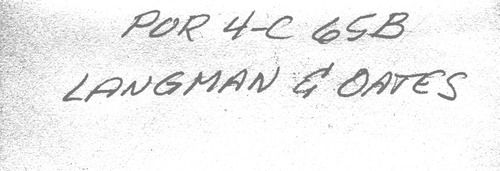 POR 4-C 65B
LANGMAN & OATES